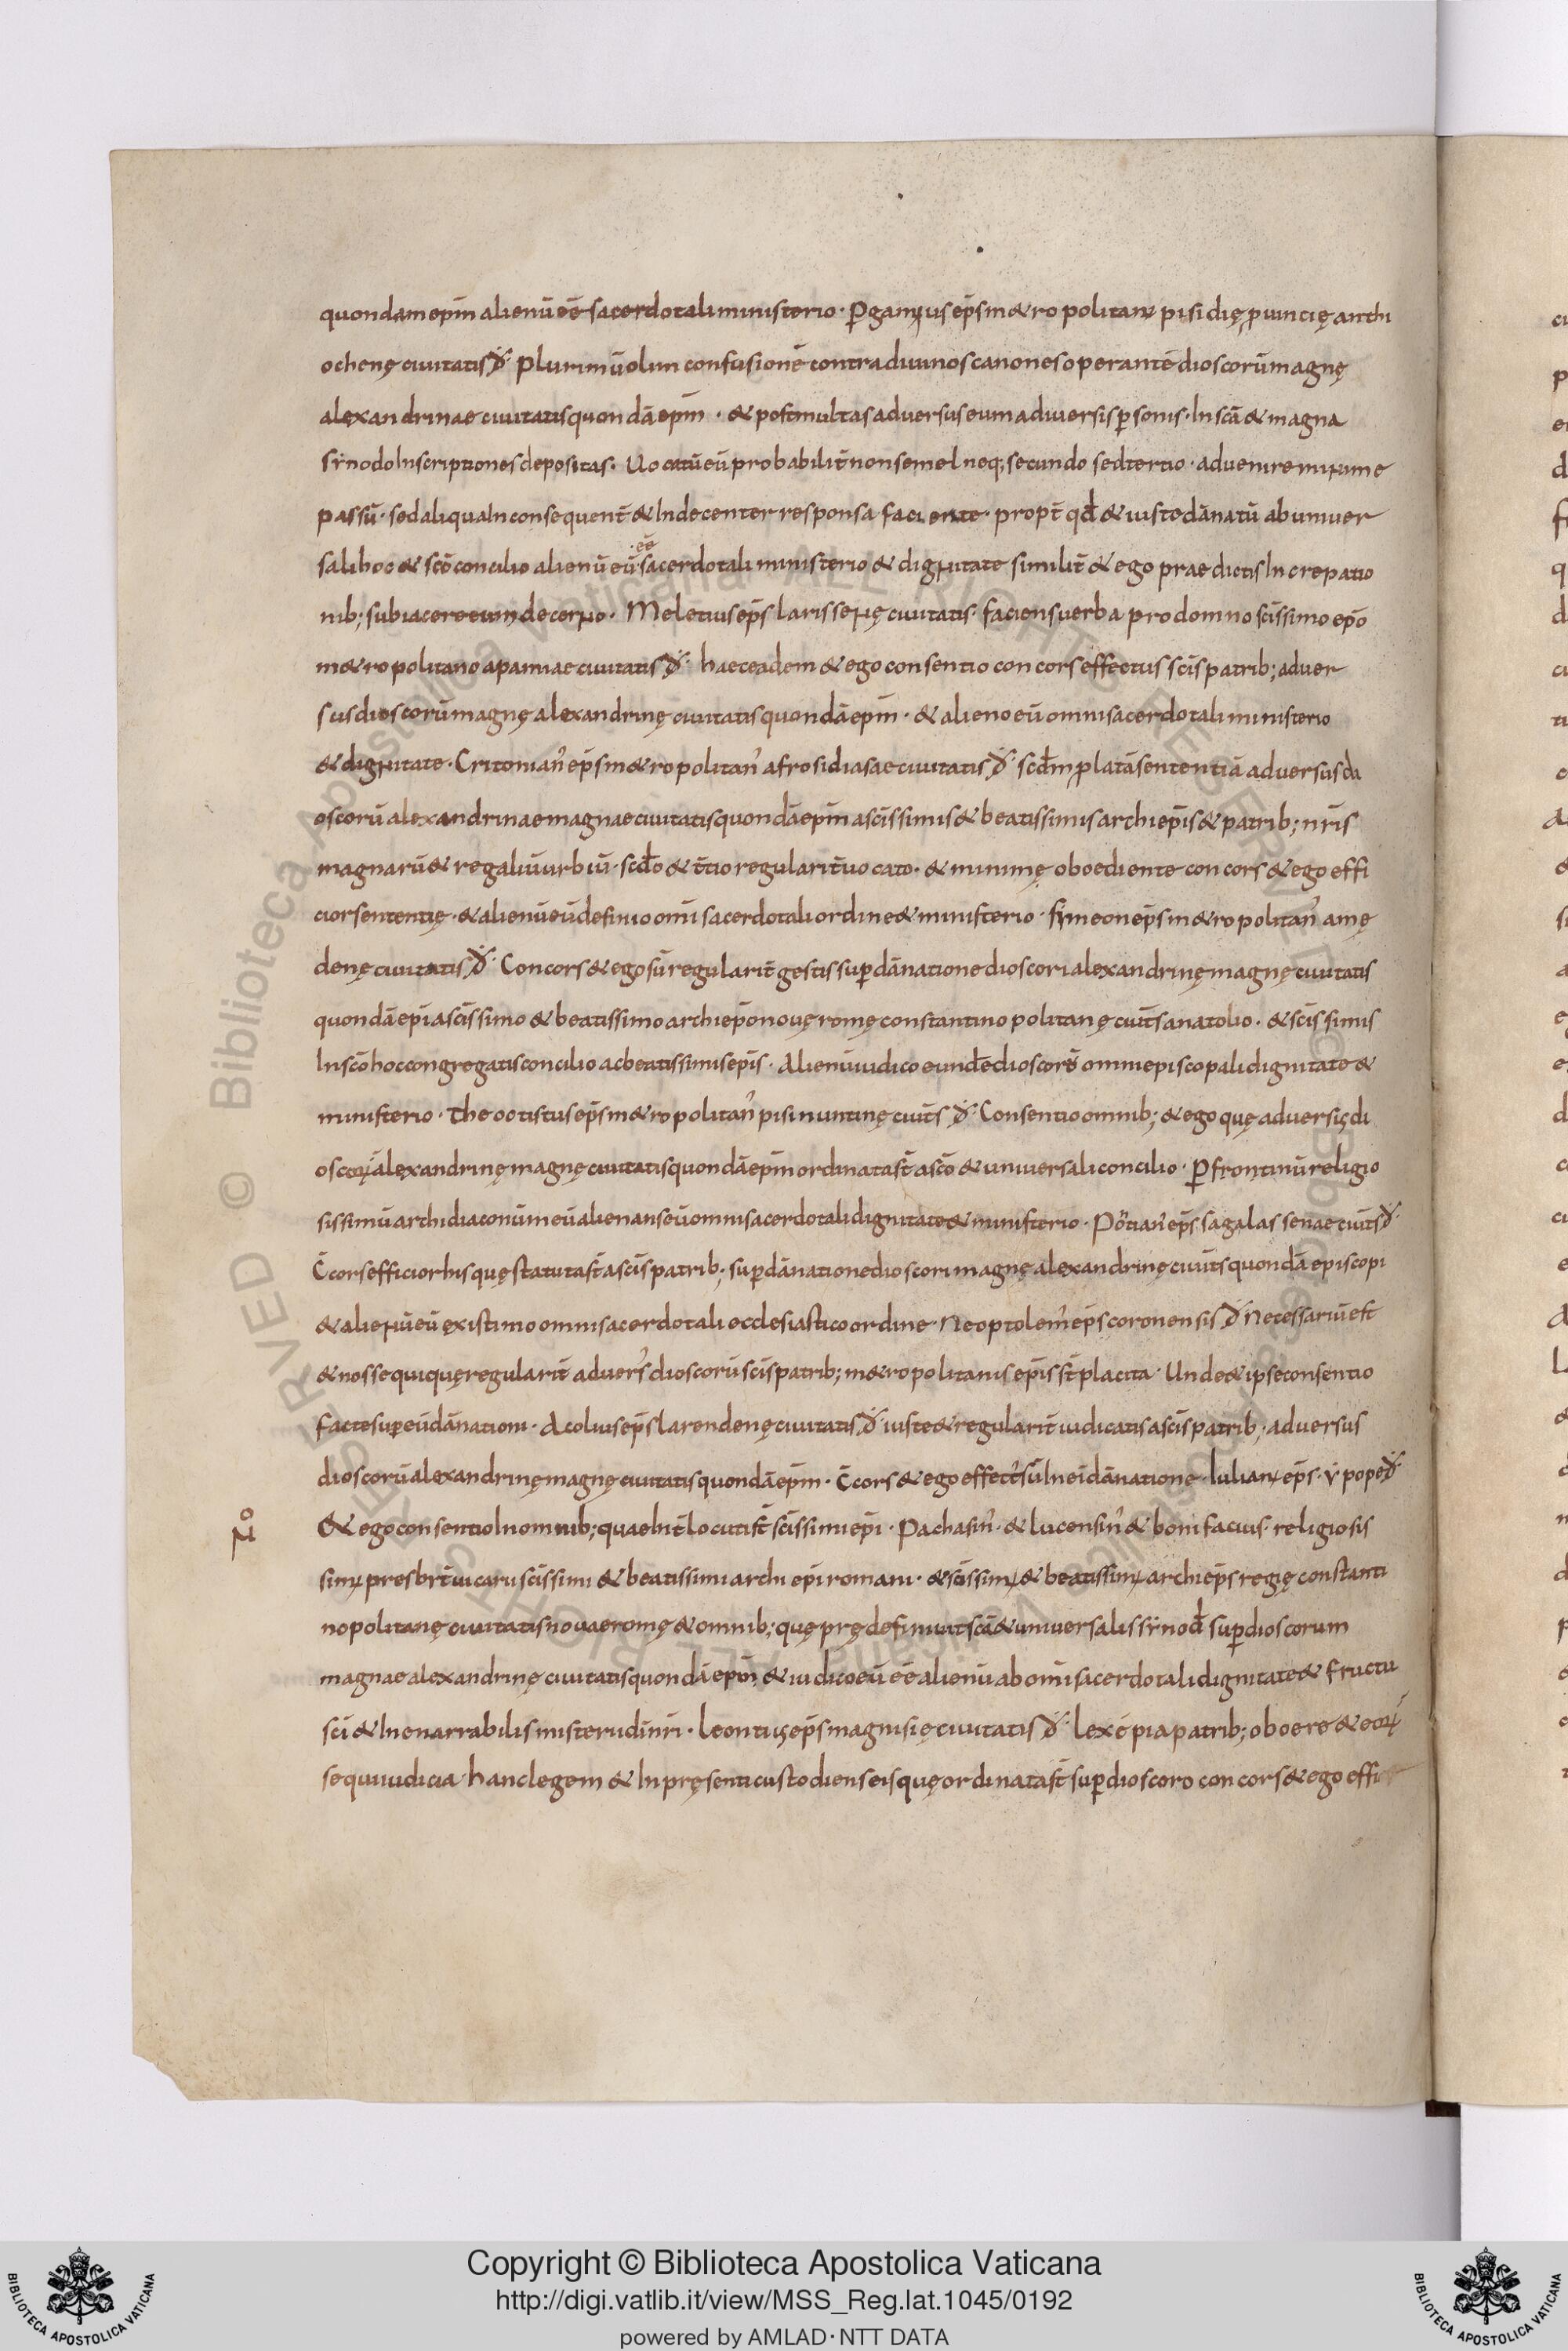 quondam epm̄ alienū eē sacerdotali ministerio · P̱gamius ep̄s m&ropolitanꝰ pisidię ꝓuincię anthi
ochenę ciuitatis đ· Plurimū olim confusionē contra diuinos canones operantē dioscorū magnę
alexandrinae ciuitatis quondā epm̄ · & post multas aduersus eum a diuersis ꝑsonis · In scā & magna
sẏnodo Inscriptiones depositas · Uocatū eū probabilit̄ non semel neq; secundo sed tertio · aduenire minime
passū · sed aliqua Inconsequent̄ & Indecenter responsa faciente · propt̄ qđ & iuste dānatū ab uniuer
sali hoc & scō concilio alienū eū eē sacerdotali ministerio & dignitate similit̄ & ego praedictis Increpatio
nib; subiacere eum decerno · Meletius ep̄s larissenę ciuitatis · faciens uerba pro domno scīssimo epō
m&ropolitano apamiae ciuitatis đ· haec eadem & ego consentio concors effectus scīs patrib; aduer
sus dioscorū magnę alexandrinę ciuitatis quondā epm̄ · & alieno eū omni sacerdotali ministerio
& dignitate · Critonianꝰ ep̄s m&ropolitanꝰ afrosidiasae ciuitatis đ· scđm ꝓlatā sententiā aduersus di
oscorū alexandrinae magnae ciuitatis quondā epm̄ a scīssimis & beatissimis archiep̄is & patrib; nr̄is
magnarū & regaliū urbiū · scđo & t̄tio regularit̄ uocato · & minimę oboediente concors & ego effi
cior sententię · & alienū eū definio om̄i sacerdotali ordine & ministerio · sẏmeon ep̄s m&ropolitanꝰ amę
denę ciuitatis đ· Concors & ego sū regularit̄ gestis suꝑ dānatione dioscori alexandrinę magnę ciuitatis
quondā ep̄i a scīssimo & beatissimo archiep̄o nouę romę constantinopolitanę ciuit̄s anatolio · & scīssimis
In scō hoc congregatis concilio ac beatissimis ep̄is · Alienū iudico eundē dioscorū omni episcopali dignitate &
ministerio · Theootistus ep̄s m&ropolitanꝰ pisinuntinę ciuit̄s đ· Consentio omnib; & ego quę aduersus di
oscorū alexandrinę magnę ciuitatis quondā epm̄ ordinata st̄ a scō & uniuersali concilio · P̱ frontinū religio
sissimū archidiaconū meū alienans eū omni sacerdotali dignitate & ministerio · Pōtianꝰ ep̄s sagalassenae ciuit̄s đ·
C̄cors efficior his quę statuta st̄ a scīs patrib; suꝑ dānatione dioscori magnę alexandrinę ciuit̄s quondā episcopi
& alienū eū existimo omni sacerdotali ecclesiastico ordine · Neoptolemꝰ ep̄s coronensis đ· Necessariū est
& nos sequi quę regularit̄ aduersꝰ dioscorū scīs patrib; m&ropolitanis ep̄is st̄ placita · Unde & ipse consentio
factę super eū dānationi · Acoluis ep̄s larendenę ciuitatis đ· iuste & regularit̄ iudicatis a scīs patrib; aduersus
dioscorū alexandrinę magnę ciuitatis quondā epm̄ · C̄cors & ego effectꝰ sū In eī dānatione · Iulianꝰ ep̄s · ẏpope đ·
& ego consentio In omnib; quae hīt locuti st̄ scīssimi ep̄i · Pachasinꝰ · & lucensinꝰ & bonifacius · religiosis
simi presbr̄i uicarii scīssimi & beatissimi archiep̄i romani · & scīssimꝰ & beatissimꝰ archiep̄s regię constanti
nopolitanę ciuitatis nouae romę & omnib; quę prędefiniuit scā & uniuersalis sẏnodꝰ suꝑ dioscorum
magnae alexandrinę ciuitatis quondā epm̄ & iudico eū eē alienū ab om̄i sacerdotali dignitate & fructu
scī & Inenarrabilis misterii dīi nr̄i · Leontius ep̄s magnisię ciuitatis đ· lex ē pia patrib; oboere & eorū
sequi iudicia · hanc legem & In pręsenti custodiens eis quę ordinata st̄ suꝑ dioscoro concors & ego effi
Copyright © Biblioteca Apostolica Vaticana
http://digi.vatlib.it/view/MSS_Reg.lat.1045/0192
powered by AMLAD·NTT DATA
BIBLIOTECA APOSTOLICA VATICANA
BIBLIOTECA APOSTOLICA VATICANA